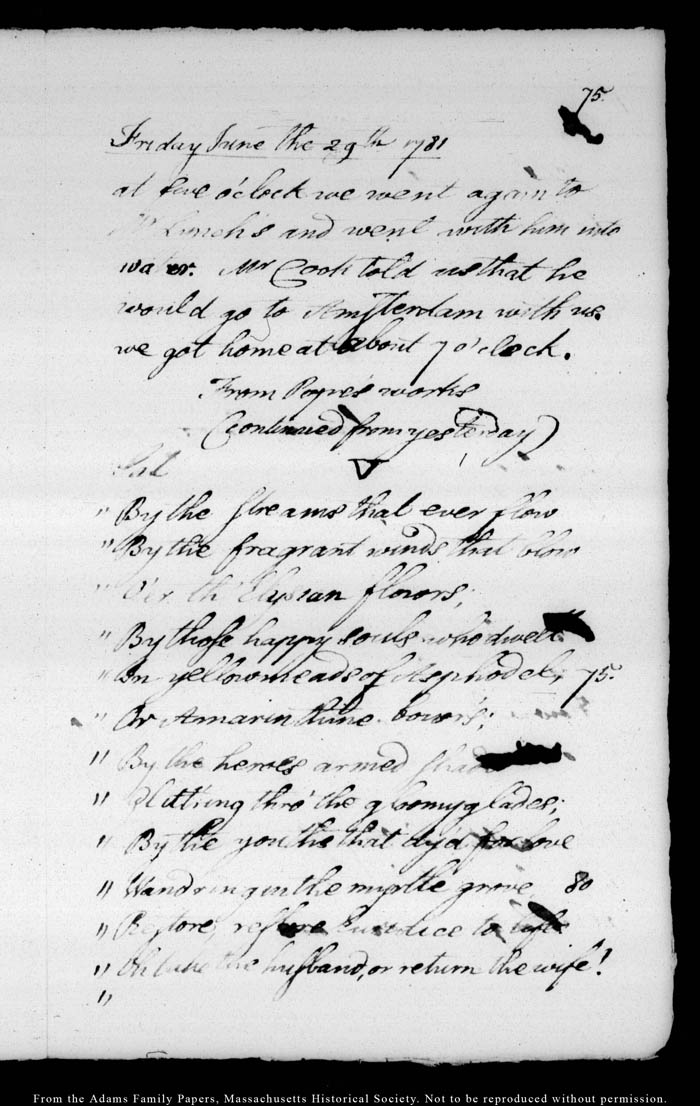 75.
Friday June the 29th 1781
at five o'clock we went again to
Mr Lynch's and went with him into
water. Mr Cook told us that he
would go to Amsterdam with us.
we got home at about 7 o'clock.
From Pope's works
(continued from yesterday)
" By the streams that ever flow
" By the fragrant winds that blow
" O'er th' Elysian flowrs;
" By those happy souls who dwell
" In yellow meads of Asphodel, 75.
" Or Amaranthine bowrs;
" By the heroes armed shades
" Glitt'ring thro' the gloomy glades;
" By the youths that dy'd for love
" Wandring in the myrtle grove 80
" Restore, restore Euridice to life
" Oh take the husband, or return the wife!
"
From the Adams Family Papers, Massachusetts Historical Society. Not to be reproduced without permission.